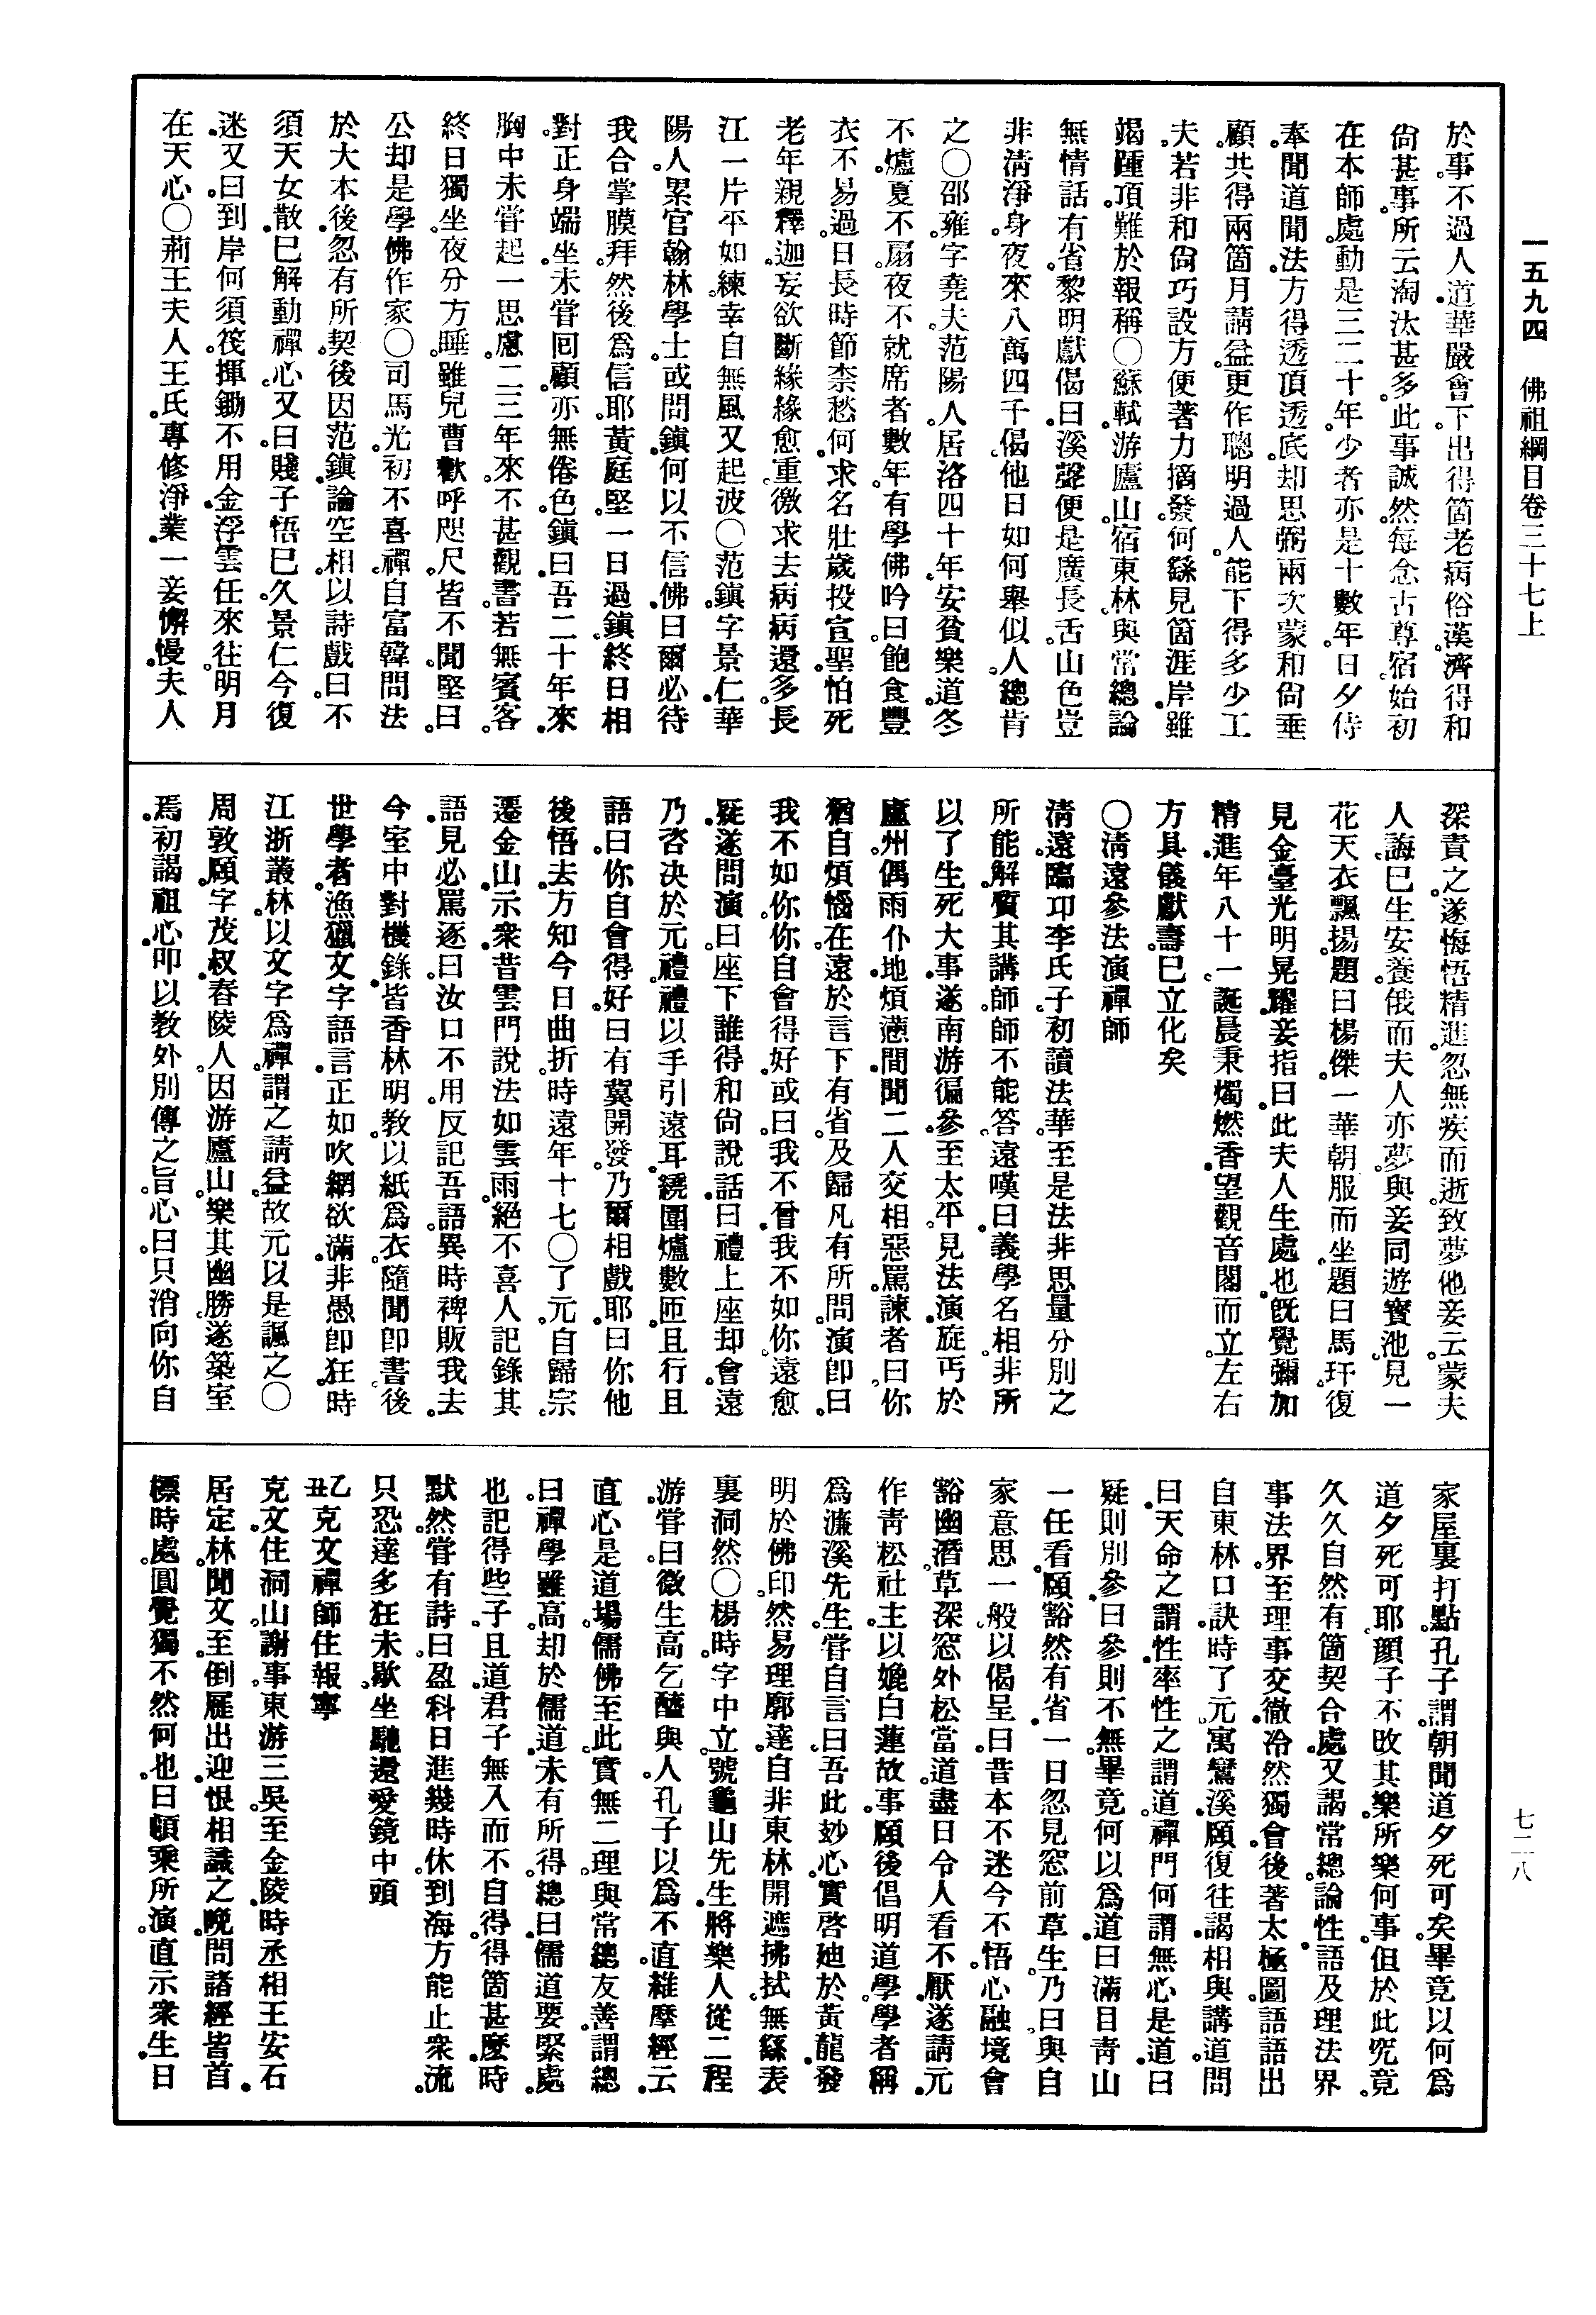 一五九四　佛祖綱目卷三十七上
於事。不過人道。華嚴會下。出得箇老病俗漢。濟得和
尙甚事。所云淘汰甚多。此事誠然。每念古尊宿。始初
在本師處。動是三二十年。少者亦是十數年。日夕侍
奉。聞道聞法。方得透頂透底。却思弼兩次蒙和尙垂
顧。共得兩箇月請益。更作聰明過人。能下得多少工
夫。若非和尙巧設方便。著力摘發。何繇見箇涯岸。雖
竭踵頂。難於報稱○蘇軾。游廬山。宿東林。與常總論
無情話有省。黎明獻偈曰。溪聲便是廣長舌。山色豈
非淸淨身。夜來八萬四千偈。他日如何舉似人。總肯
之○邵雍。字堯夫。范陽人。居洛四十年。安貧樂道。冬
不爐。夏不扇。夜不就席者數年。有學佛吟曰。飽食豐
衣不易過。日長時節柰愁何。求名壯歲投宣聖。怕死
老年親釋迦。妄欲斷緣緣愈重。徼求去病病還多。長
江一片平如練。幸自無風又起波○范鎭。字景仁。華
陽人。累官翰林學士。或問鎭。何以不信佛。曰爾必待
我合掌膜拜。然後爲信耶。黃庭堅。一日過鎭。終日相
對。正身端坐。未嘗回顧。亦無倦色。鎭曰。吾二十年來。
胸中未嘗起一思慮。二三年來。不甚觀書。若無賓客。
終日獨坐。夜分方睡。雖兒曹歡呼咫尺。皆不聞。堅曰。
公却是學佛作家○司馬光。初不喜禪。自富韓問法
於大本後。忽有所契。後因范鎭論空相。以詩戲曰。不
須天女散。已解動禪心。又曰。賤子悟已久。景仁今復
迷。又曰。到岸何須筏。揮鋤不用金。浮雲任來往。明月
在天心○荊王夫人王氏。專修淨業。一妾懈慢。夫人
深責之。遂悔悟精進。忽無疾而逝。致夢他妾云。蒙夫
人誨。已生安養。俄而夫人亦夢。與妾同遊寶池。見一
花。天衣飄揚。題曰楊傑。一華朝服而坐。題曰馬玗。復
見金臺光明晃耀。妾指曰。此夫人生處也。旣覺彌加
精進。年八十一。誕晨秉燭燃香。望觀音閣而立。左右
方具儀獻壽。已立化矣
○淸遠參法演禪師
淸遠。臨卭李氏子。初讀法華。至是法非思量分別之
所能解。質其講師。師不能答。遠嘆曰。義學名相。非所
以了生死大事。遂南游徧參。至太平見法演。旋丐於
廬州。偶雨仆地。煩懣間。聞二人交相惡罵。諫者曰。你
猶自煩惱在。遠於言下有省。及歸凡有所問。演卽曰。
我不如你。你自會得好。或曰。我不會。我不如你。遠愈
疑。遂問演曰。座下誰得和尙說話。曰禮上座却會。遠
乃咨决於元禮。禮以手引遠耳。繞圍爐數匝。且行且
語曰。你自會得好。曰有冀開發。乃爾相戲耶。曰你他
後悟去。方知今日曲折。時遠年十七○了元。自歸宗。
遷金山。示衆。昔雲門說法如雲雨。絕不喜人記錄其
語。見必罵逐曰。汝口不用。反記吾語。異時裨販我去。
今室中對機錄。皆香林明教。以紙爲衣。隨聞卽書。後
世學者。漁獵文字語言。正如吹網欲滿。非愚卽狂。時
江浙叢林。以文字爲禪。謂之請益。故元以是諷之○
周敦頤。字茂叔。舂陵人。因游廬山。樂其幽勝。遂築室
焉。初謁祖心。叩以教外別傳之旨。心曰。只消向你自
家屋裏打點。孔子謂朝聞道夕死可矣。畢竟以何爲
道。夕死可耶。顏子不攺其樂。所樂何事。但於此究竟。
久久自然有箇契合處。又謁常總。論性。語及理法界
事法界。至理事交徹。冷然獨會。後著太極圖語。語出
自東林口訣。時了元寓鸞溪。頤復往謁。相與講道。問
曰。天命之謂性。率性之謂道。禪門何謂無心是道。曰
疑則別參。曰參則不無。畢竟何以爲道。曰滿目靑山
一任看。頤豁然有省。一日忽見窓前草生。乃曰。與自
家意思一般。以偈呈曰。昔本不迷今不悟。心融境會
豁幽潛。草深窓外松當道。盡日令人看不厭。遂請元
作靑松社主。以媲白蓮故事。頤後倡明道學。學者稱
爲濂溪先生。嘗自言曰。吾此妙心。實啓廸於黃龍。發
明於佛印。然易理廓達。自非東林開遮拂拭。無繇表
裏洞然○楊時。字中立。號龜山先生。將樂人。從二程
游。嘗曰。微生高乞醯與人。孔子以爲不直。維摩經云。
直心是道場。儒佛至此。實無二理。與常總友善。謂總
曰。禪學雖高。却於儒道。未有所得。總曰。儒道要緊處
也記得些子。且道君子無入而不自得。得箇甚麼。時
默然。嘗有詩曰。盈科日進幾時休。到海方能止衆流。
只恐達多狂未歇。坐馳還愛鏡中頭
乙丑克文禪師住報寧
克文。住洞山。謝事東游三吳。至金陵。時丞相王安石。
居定林。聞文至。倒屣出迎。恨相識之晚。問諸經皆首
標時處。圓覺獨不然。何也。曰頓乘所演。直示衆生。日
七二八